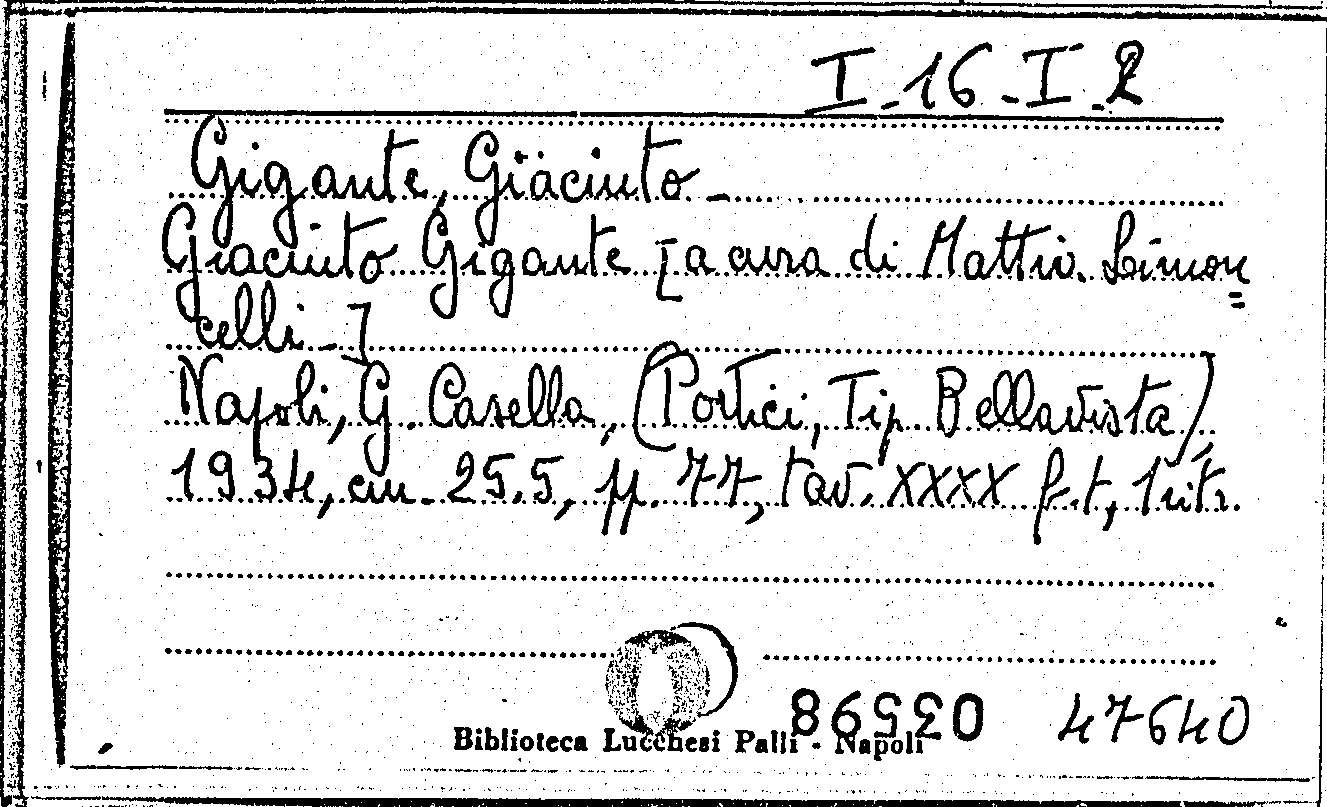 I-16-I-2
Gigante, Giacinto -
Giacinto Gigante [a cura di Mattia Limon=
celli -]
Napoli, G. Casella, (Portici, Tip. Bellavista),
1934, cm. 25.5, pp. 77, tav. XXXX f.t, 1 ritr.
03598 47640
Biblioteca Lucchesi Palli - Napoli